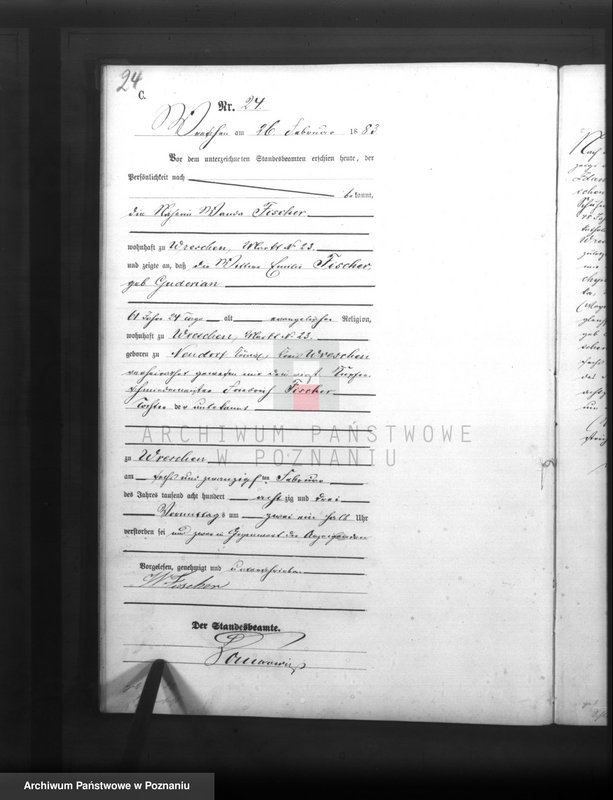 24
C.
Nr. 24.
Wreschen am 26 Februar 1883
Vor dem unterzeichneten Standesbeamten erschien heute, der
Persönlichkeit nach
bekannt,
die Wanda Fischer
wohnhaft zu Wreschen, Markt N 23.
und zeigte an, daß die Wittwe Emilie Fischer,
geb Guderian
61 Jahre 24 Tage alt evangelischer Religion,
wohnhaft zu Wreschen, Markt N 23.
geboren zu Neudorf Kreis Wreschen
verheirathet gewesen mit dem verst. Kupfer-
schmiedemeister Friedrich Fischer
Tochter der unbekannt
zu Wreschen
am sechs und zwanzigsten Februar
des Jahres tausend acht hundert achtzig und drei
Vormittags um zwei ein halb Uhr
verstorben sei und zwar in Gegenwart der Anzeigenden
Vorgelesen, genehmigt und unterschrieben
W Fischer
Der Standesbeamte.
ARCHIWUM PAŃSTWOWE
W POZNANIU
Archiwum Państwowe w Poznaniu